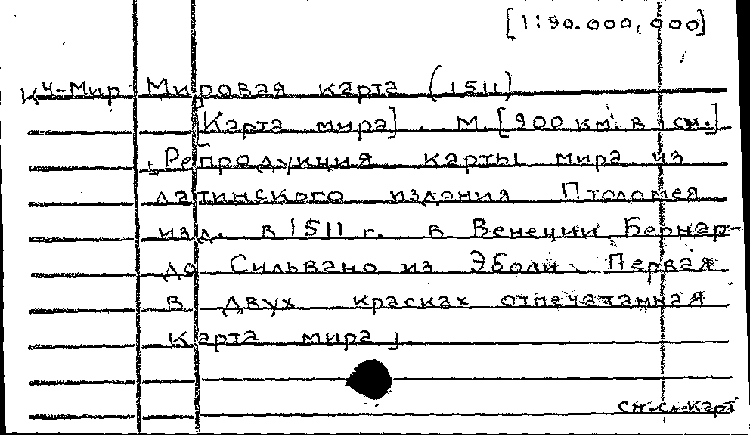 [1:90.000,000]
кч-Мир Мировая карта (1511)
[Карта мира]. М. [900 км. в 1 см.]
[Репродукция карты мира из
латинского издания Птоломея
изд. в 1511 г. в Венеции Бернар-
до Сильвано из Эболи. Первая
в двух красках отпечатанная
карта мира].
см-сл-карт